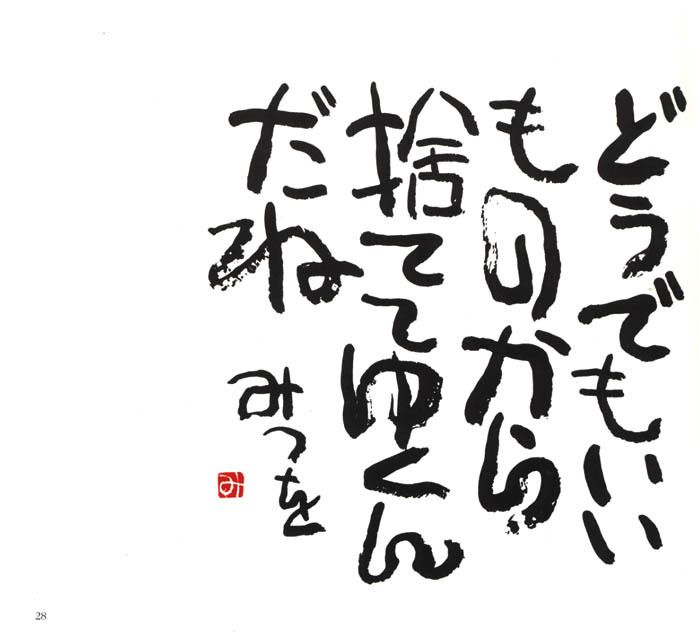 どうでもいい
ものから
捨ててゆくん
だね
みつを
み
28